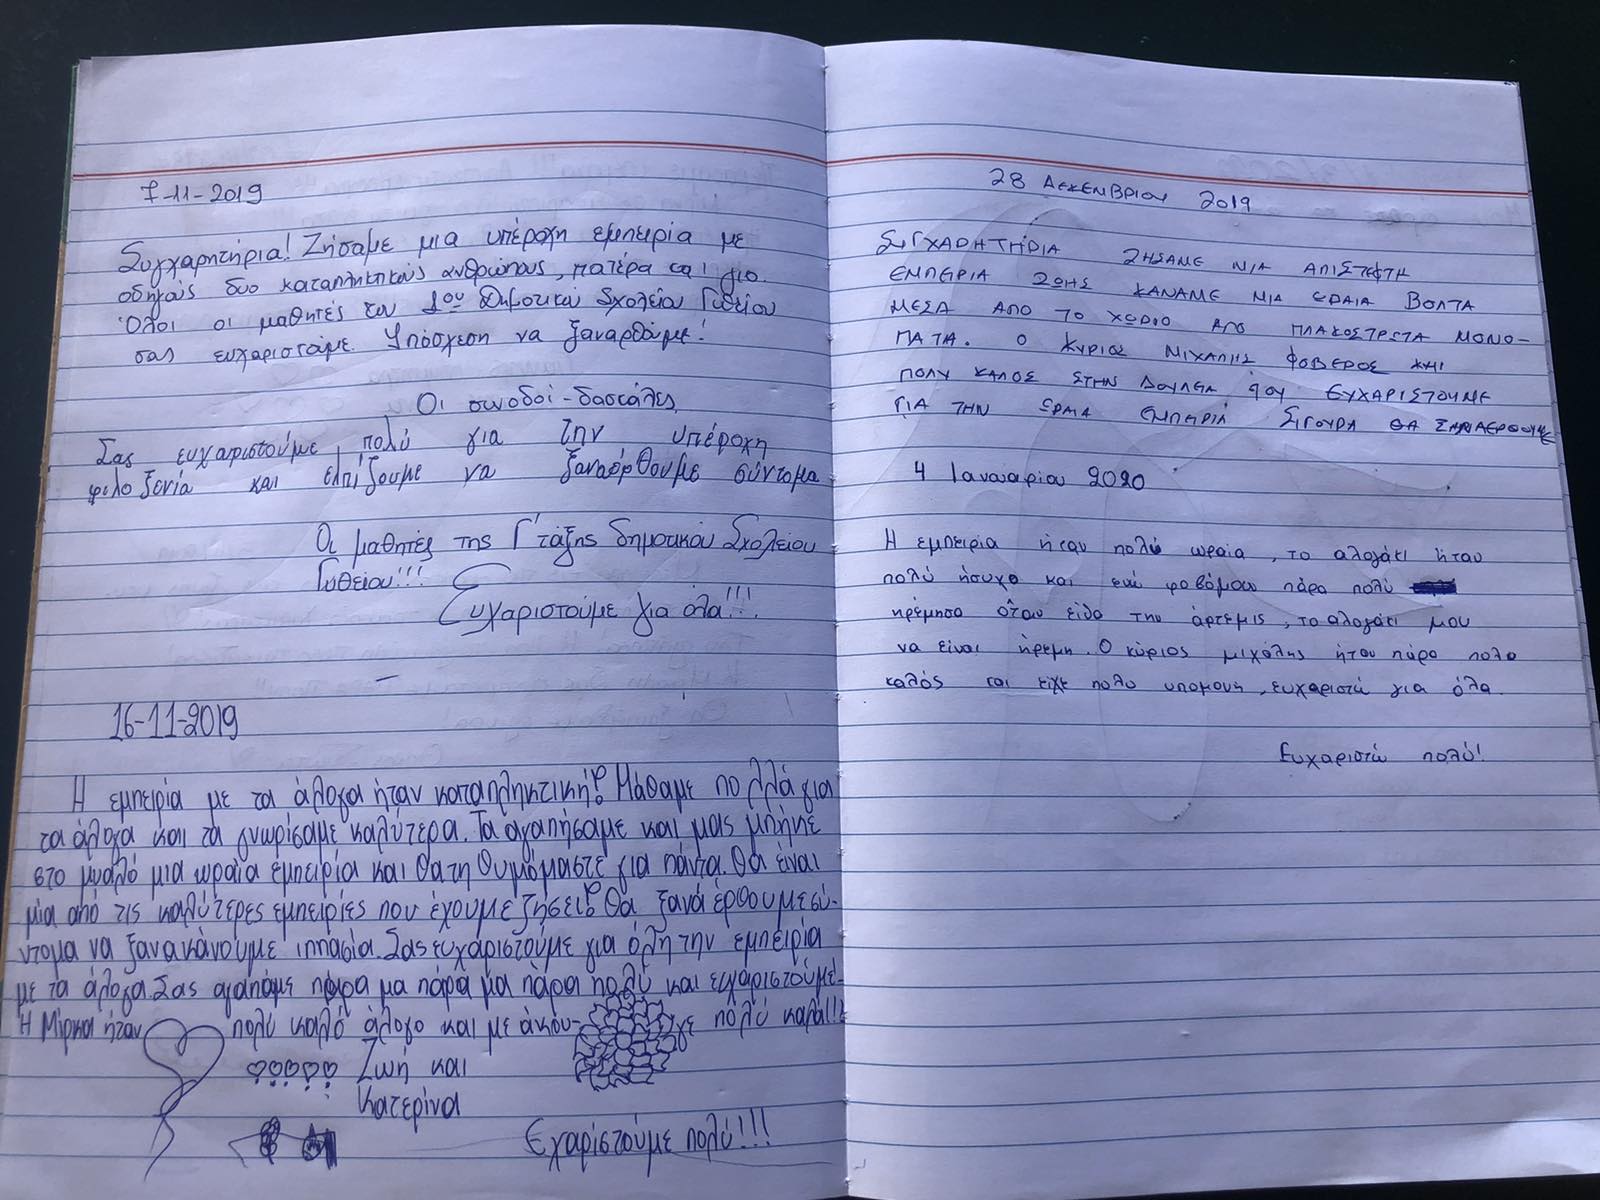 7-11-2019
Συγχαρητήρια! Ζήσαμε μια υπέροχη εμπειρία με
οδηγούς δυο καταπληκτικούς ανθρώπους, πατέρα και γιο.
Όλοι οι μαθητές του 1ου Δημοτικού Σχολείου Γυθείου
σας ευχαριστούμε. Υπόσχεση να ξαναρθούμε!
Οι συνοδοί-δασκάλες
Σας ευχαριστούμε πολύ για την υπέροχη
φιλοξενία και ελπίζουμε να ξαναέρθουμε σύντομα
Οι μαθητές της Γ' τάξης δημοτικού Σχολείου
Γυθείου!!!
Ευχαριστούμε για όλα!!!
16-11-2019
Η εμπειρία με τα άλογα ήταν καταπληκτική! Μάθαμε πολλά για
τα άλογα και τα γνωρίσαμε καλύτερα. Τα αγαπήσαμε και μας μπήκε
στο μυαλό μια ωραία εμπειρία και θα τη θυμόμαστε για πάντα. Θα είναι
μία από τις καλύτερες εμπειρίες που έχουμε ζήσει! Θα ξανά έρθουμε σύ-
ντομα να ξανακάνουμε ιππασία. Σας ευχαριστούμε για όλη την εμπειρία
με τα άλογα. Σας αγαπάμε πάρα μα πάρα μα πάρα πολύ και ευχαριστούμε!
Η Μίρκα ήταν πολύ καλό άλογο και με άκου-γε πολύ καλά!!!
Ζωή και
Κατερίνα
Εχαριστούμε πολύ!!!
28 ΔΕΚΕΜΒΡΙΟΥ 2019
ΣΙΓΧΑΡΗΤΗΡΙΑ ΖΗΣΑΜΕ ΜΙΑ ΑΠΙΣΤΕΦΤΗ
ΕΜΠΕΙΡΙΑ ΖΩΗΣ ΚΑΝΑΜΕ ΜΙΑ ΩΡΑΙΑ ΒΟΛΤΑ
ΜΕΣΑ ΑΠΟ ΤΟ ΧΩΡΙΟ ΑΠΟ ΠΛΑΚΟΣΤΡΩΤΑ ΜΟΝΟ-
ΠΑΤΙΑ. Ο ΚΥΡΙΟΣ ΜΙΧΑΛΗΣ ΦΟΒΕΡΟΣ ΚΑΙ
ΠΟΛΥ ΚΑΛΟΣ ΣΤΗΝ ΔΟΥΛΕΙΑ ΤΟΥ ΕΥΧΑΡΙΣΤΟΥΜΕ
ΓΙΑ ΤΗΝ ΩΡΑΙΑ ΕΜΠΕΙΡΙΑ ΣΙΓΟΥΡΑ ΘΑ ΞΑΝΑΕΡΘΟΥΜΕ
4 Ιανουαρίου 2020
Η εμπειρία ήταν πολύ ωραία, το αλογάκι ήταν
πολύ ήσυχο και εγώ φοβόμουν πάρα πολύ
ηρέμησα όταν είδα την άρτεμις, το αλογάκι μου
να είναι ήρεμη. Ο κύριος μιχάλης ήταν πάρα πολυ
καλός και είχε πολυ υπομονή, ευχαριστώ για όλα.
Ευχαριστώ πολύ!